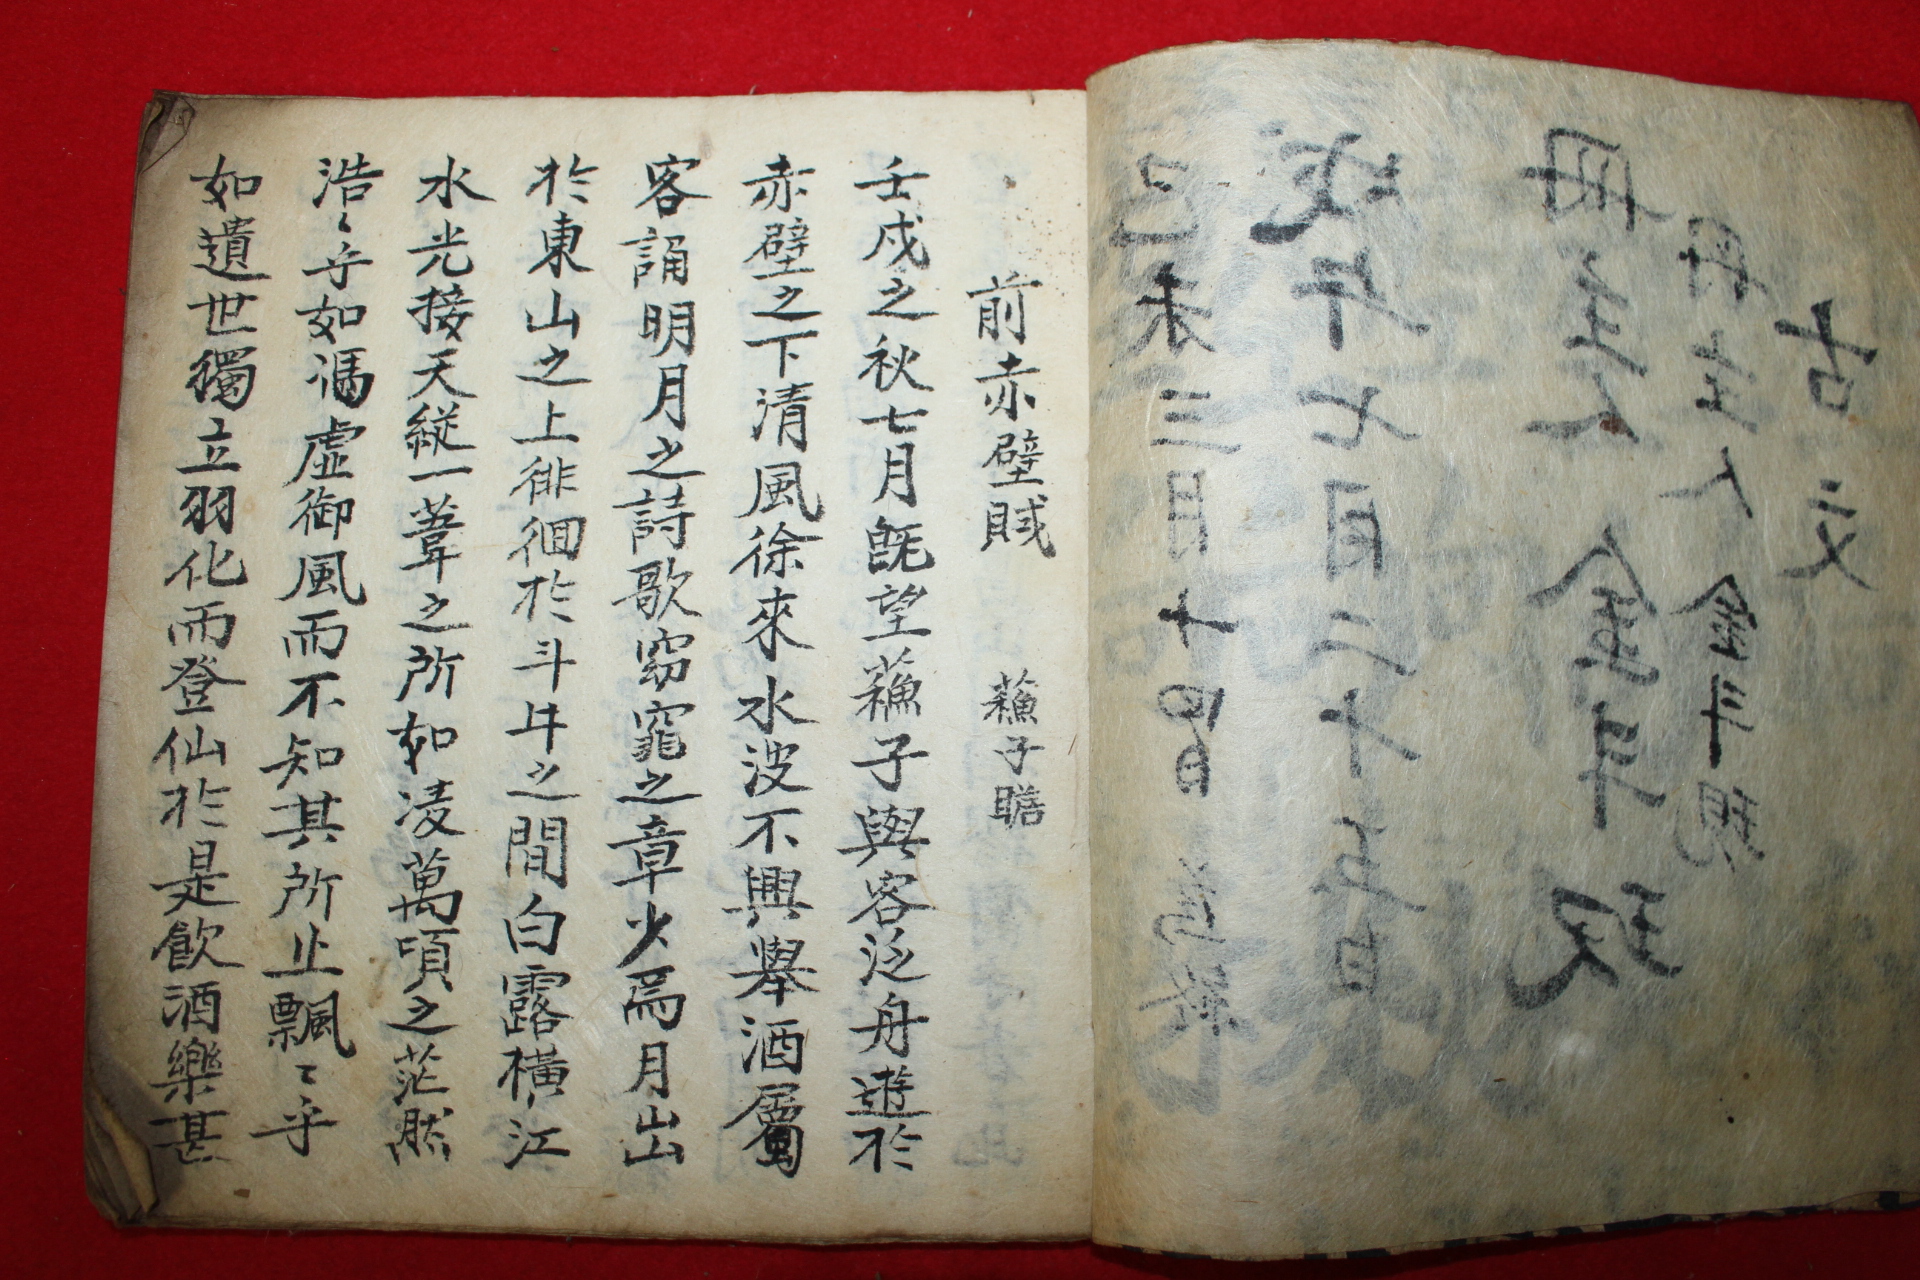 古文
冊主人金斗現
冊主人金斗
午七月二十五日
己未三月十四日
前赤壁賦 蘓子瞻
壬戌之秋七月旣望蘓子與客泛舟遊扵
赤壁之下清風徐來水波不興擧酒屬
客誦明月之詩歌窈窕之章少焉月出
扵東山之上徘徊扵斗牛之間白露橫江
水光接天縱一葦之所如凌萬頃之茫然
浩〻乎如馮虛御風而不知其所止飄〻乎
如遺世獨立羽化而登仙扵是飮酒樂甚